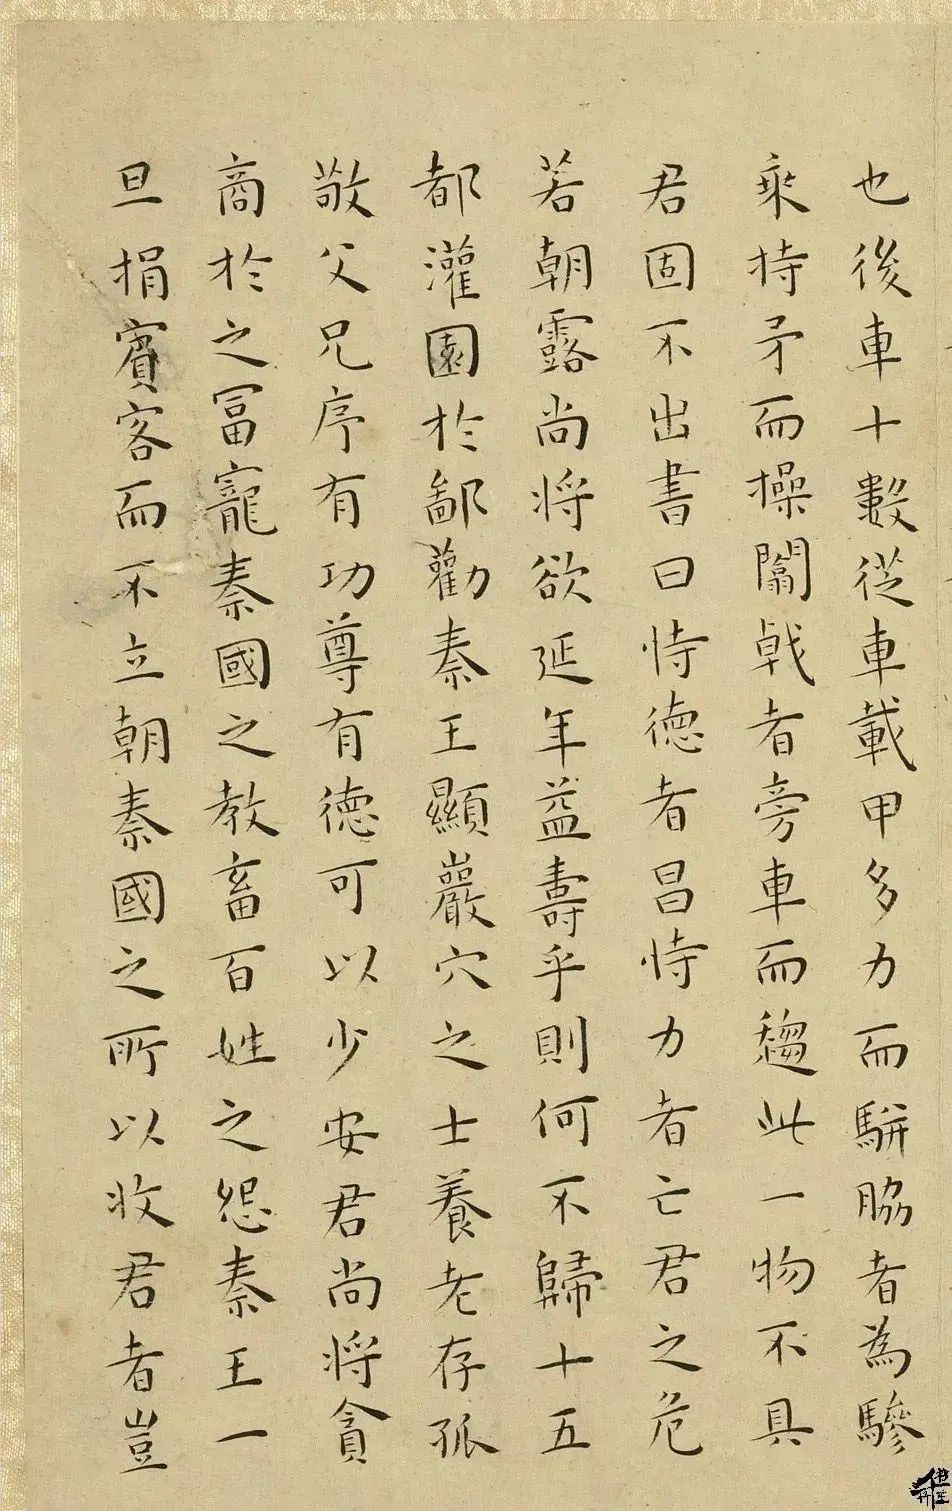 也後車十數從車載甲多力而駢脇者為驂
乘持矛而操闟戟者旁車而趨此一物不具
君固不出書曰恃德者昌恃力者亡君之危
若朝露尚將欲延年益壽乎則何不歸十五
都灌園於鄙勸秦王顯巖穴之士養老存孤
敬父兄序有功尊有德可以少安君尚將貪
商於之冨寵秦國之教畜百姓之怨秦王一
旦捐賓客而不立朝秦國之所以收君者豈